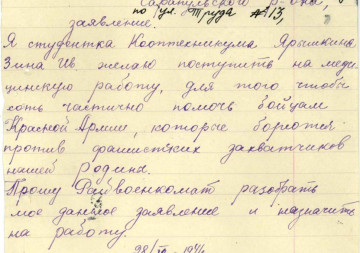 Сарапульского р-она,
по ул. Труда № 13,
заявление.
Я студентка Коптехникума Ярышкина
Зина Ив. желаю поступить на меди
цинскую работу, для того чтобы
хоть частично помочь бойцам
Красной Армии, которые борются
против фашистских захватчиков
нашей Родины.
Прошу Райвоенкомат разобрать
мое данное заявление и назначить
на работу.